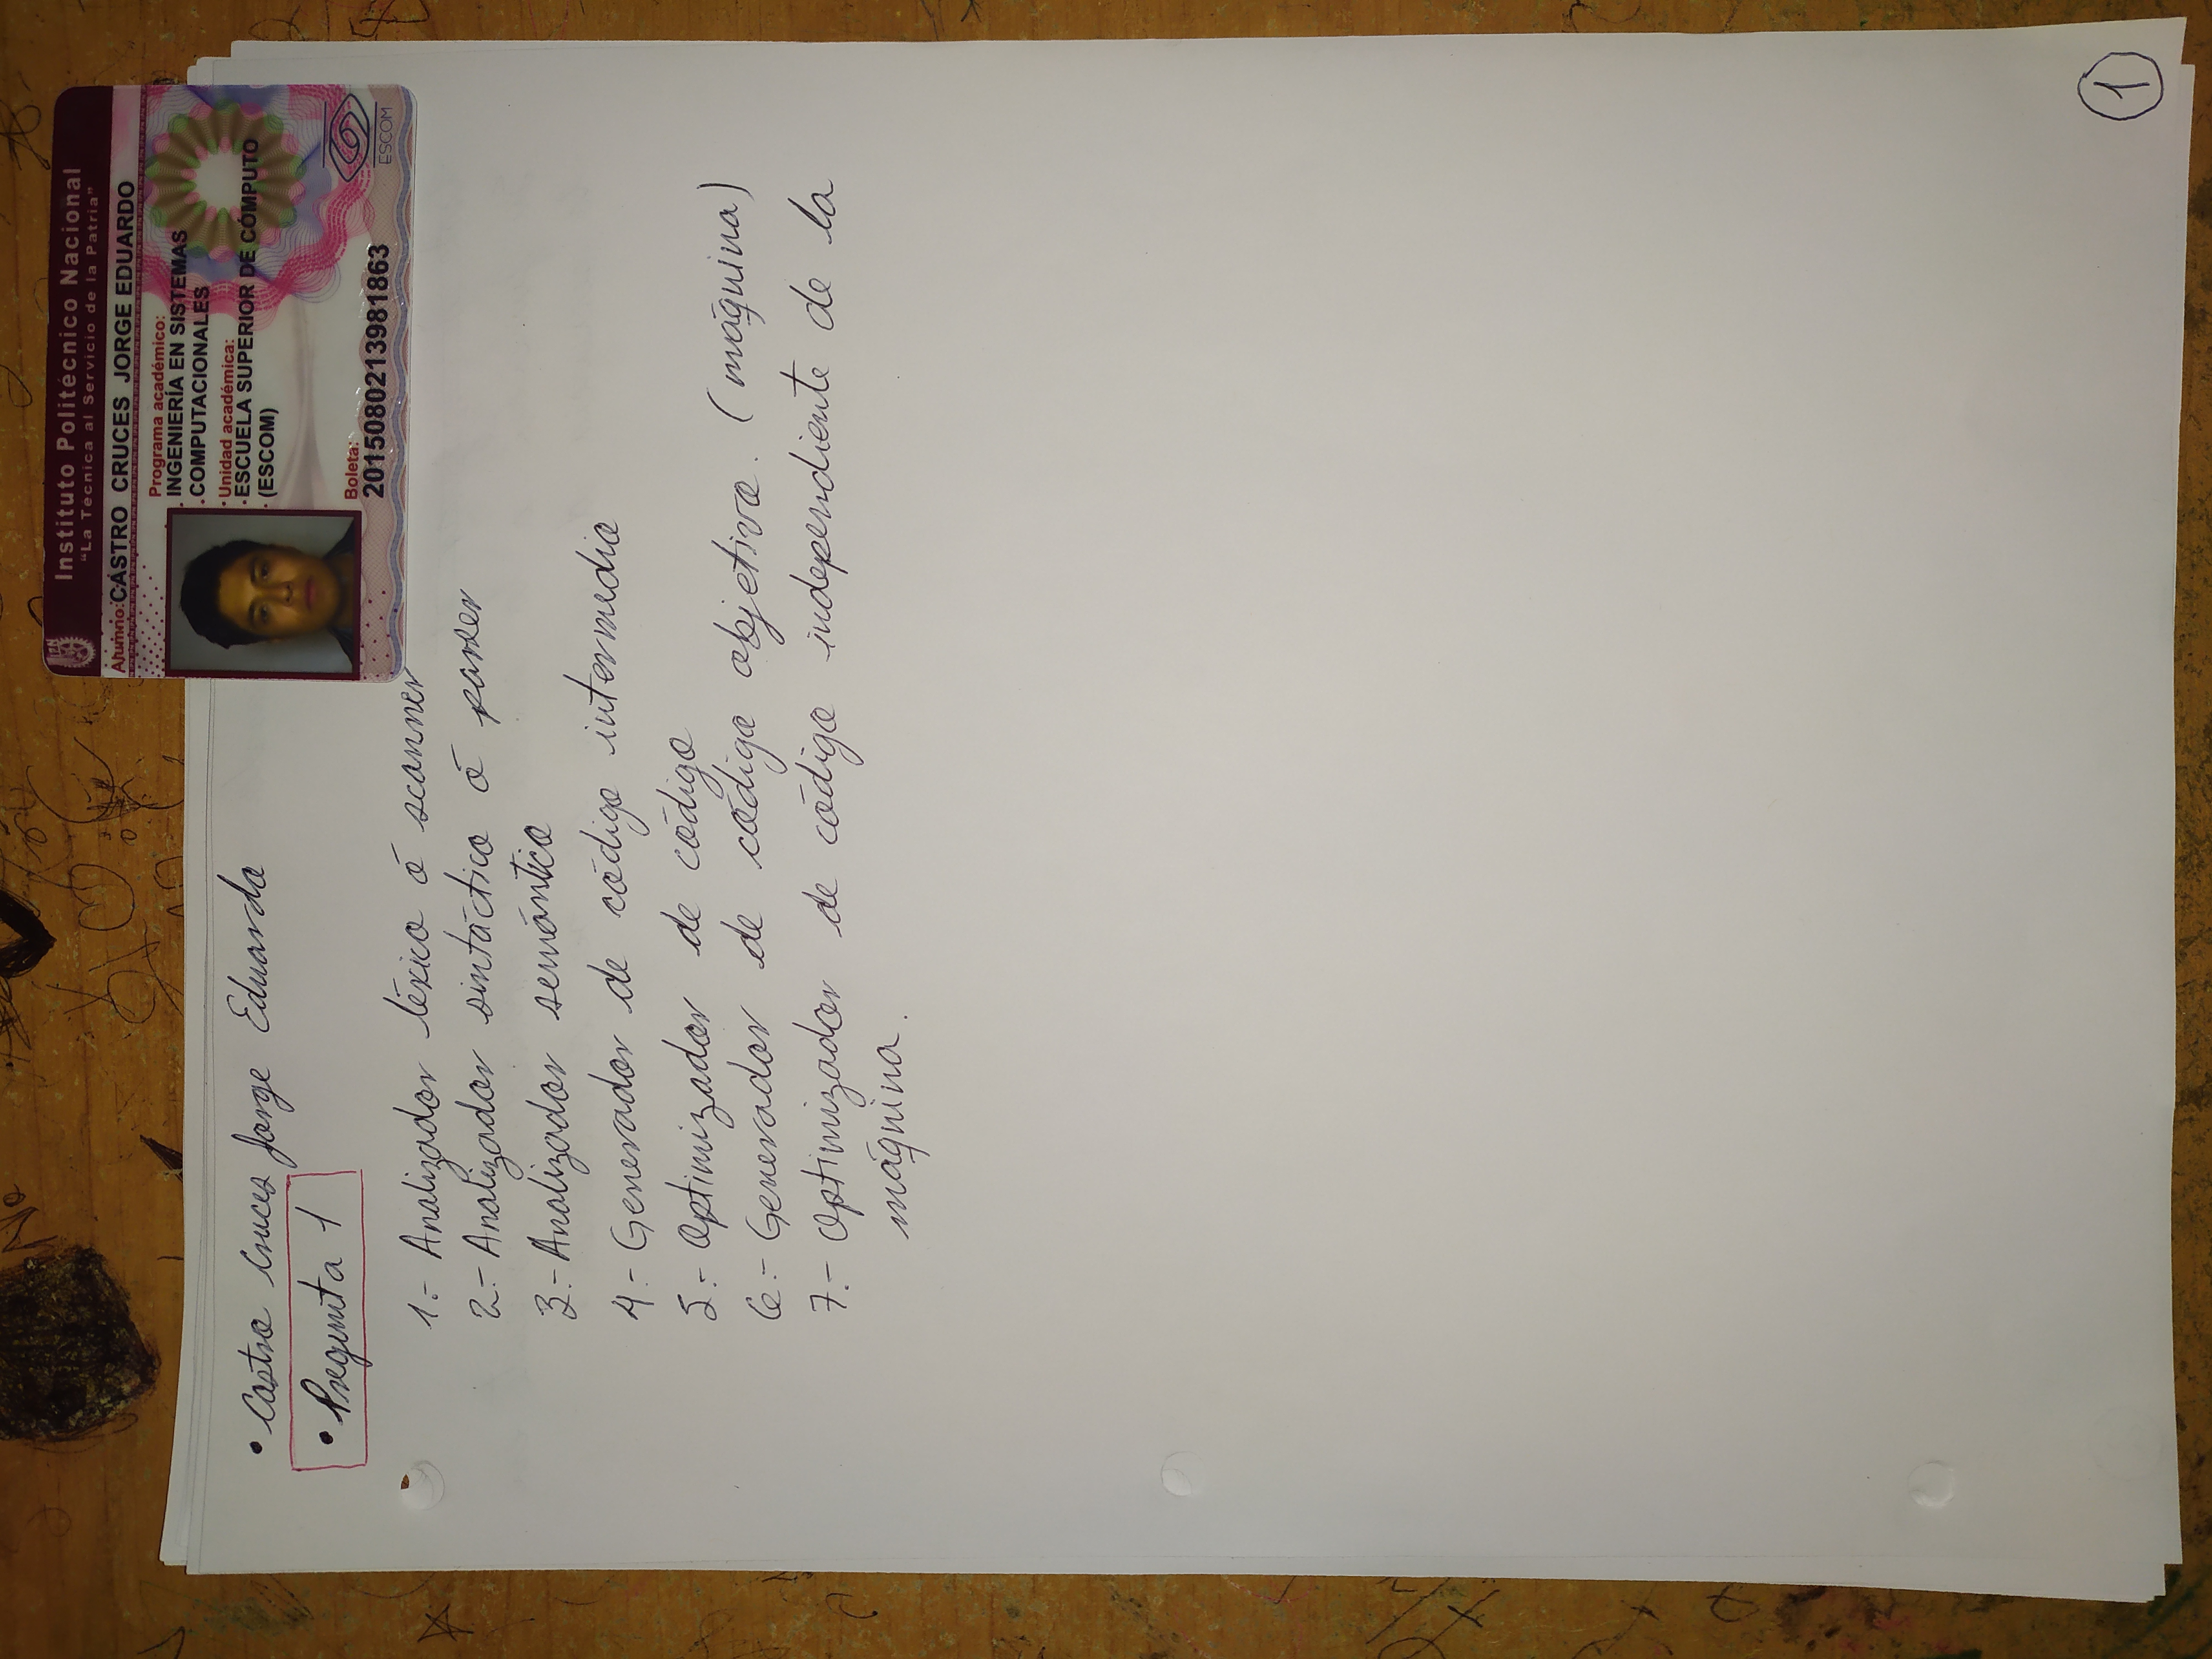 Instituto Politécnico Nacional
"La Técnica al Servicio de la Patria"
Alumno: CASTRO CRUCES JORGE EDUARDO
Programa académico:
INGENIERÍA EN SISTEMAS
COMPUTACIONALES
Unidad académica:
ESCUELA SUPERIOR DE CÓMPUTO
(ESCOM)
Boleta:
2015080213981863
ESCOM
• Castro Cruces Jorge Eduardo
• Pregunta 1
1.- Analizador léxico ó scanner
2.- Analizador sintáctico ó parser
3.- Analizador semántico
4.- Generador de código intermedio
5.- Optimizador de código
6.- Generador de código objetivo. (máquina)
7.- Optimizador de código independiente de la
máquina.
1